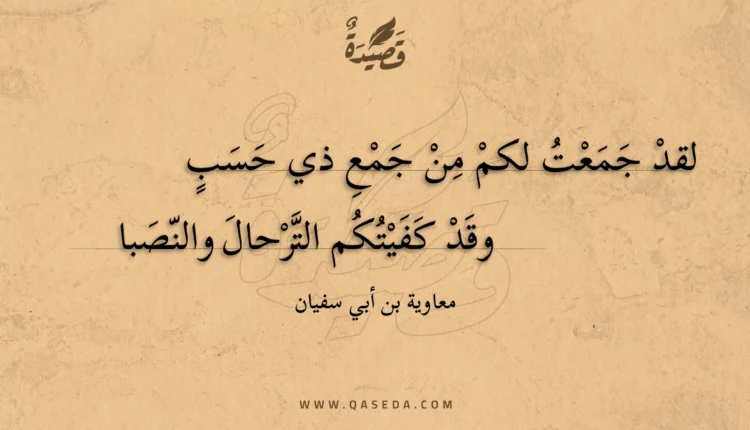 قَصِيْدَةٌ
لقدْ جَمَعْتُ لكمْ مِنْ جَمْعِ ذي حَسَبٍ
وقَدْ كَفَيْتُكُم التَّرْحالَ والنّصَبا
معاوية بن أبي سفيان
WWW.QASEDA.COM